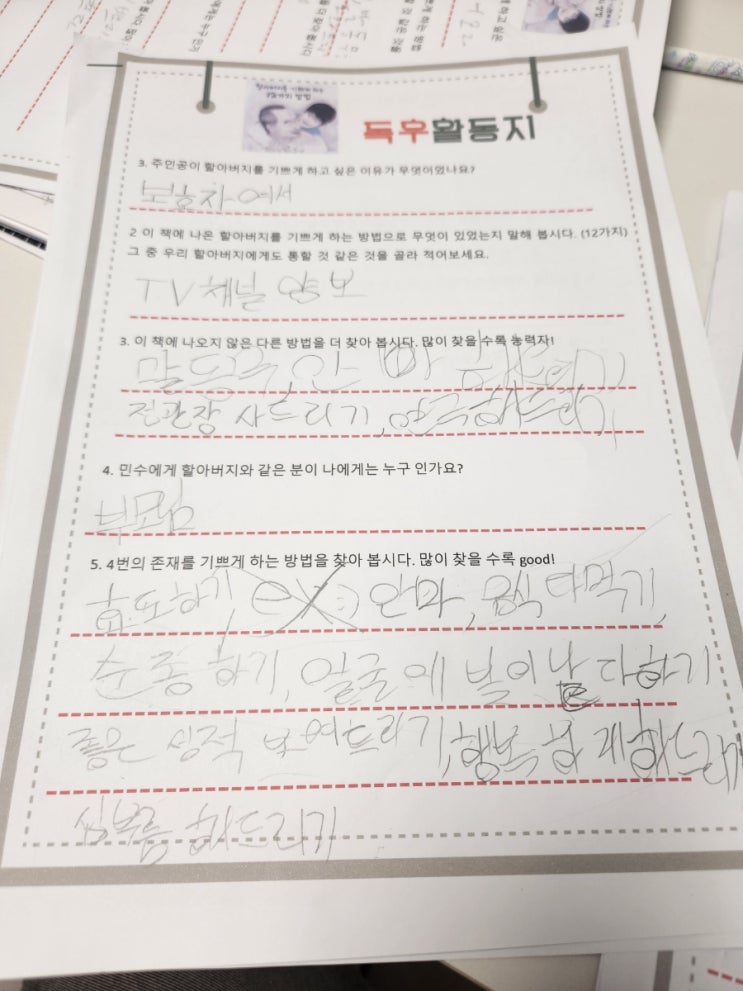 독후활동지
3. 주인공이 할아버지를 기쁘게 하고 싶은 이유가 무엇이었나요?
보답차에서
2 이 책에 나온 할아버지를 기쁘게 하는 방법으로 무엇이 있었는지 말해 봅시다. (12가지)
그 중 우리 할아버지에게도 통할 것 같은 것을 골라 적어보세요.
TV채널 양보
3. 이 책에 나오지 않은 다른 방법을 더 찾아 봅시다. 많이 찾을 수록 능력자!
말동무, 안마
정관장 사드리기,
4. 민수에게 할아버지와 같은 분이 나에게는 누구 인가요?
부모님
5. 4번의 존재를 기쁘게 하는 방법을 찾아 봅시다. 많이 찾을 수록 good!
효도하기, 안마, 음식 다먹기,
순종하기, 얼굴에 빛이 난다하기
좋은 성적 보여드리기, 행복하게해드리기
심부름 해드리기